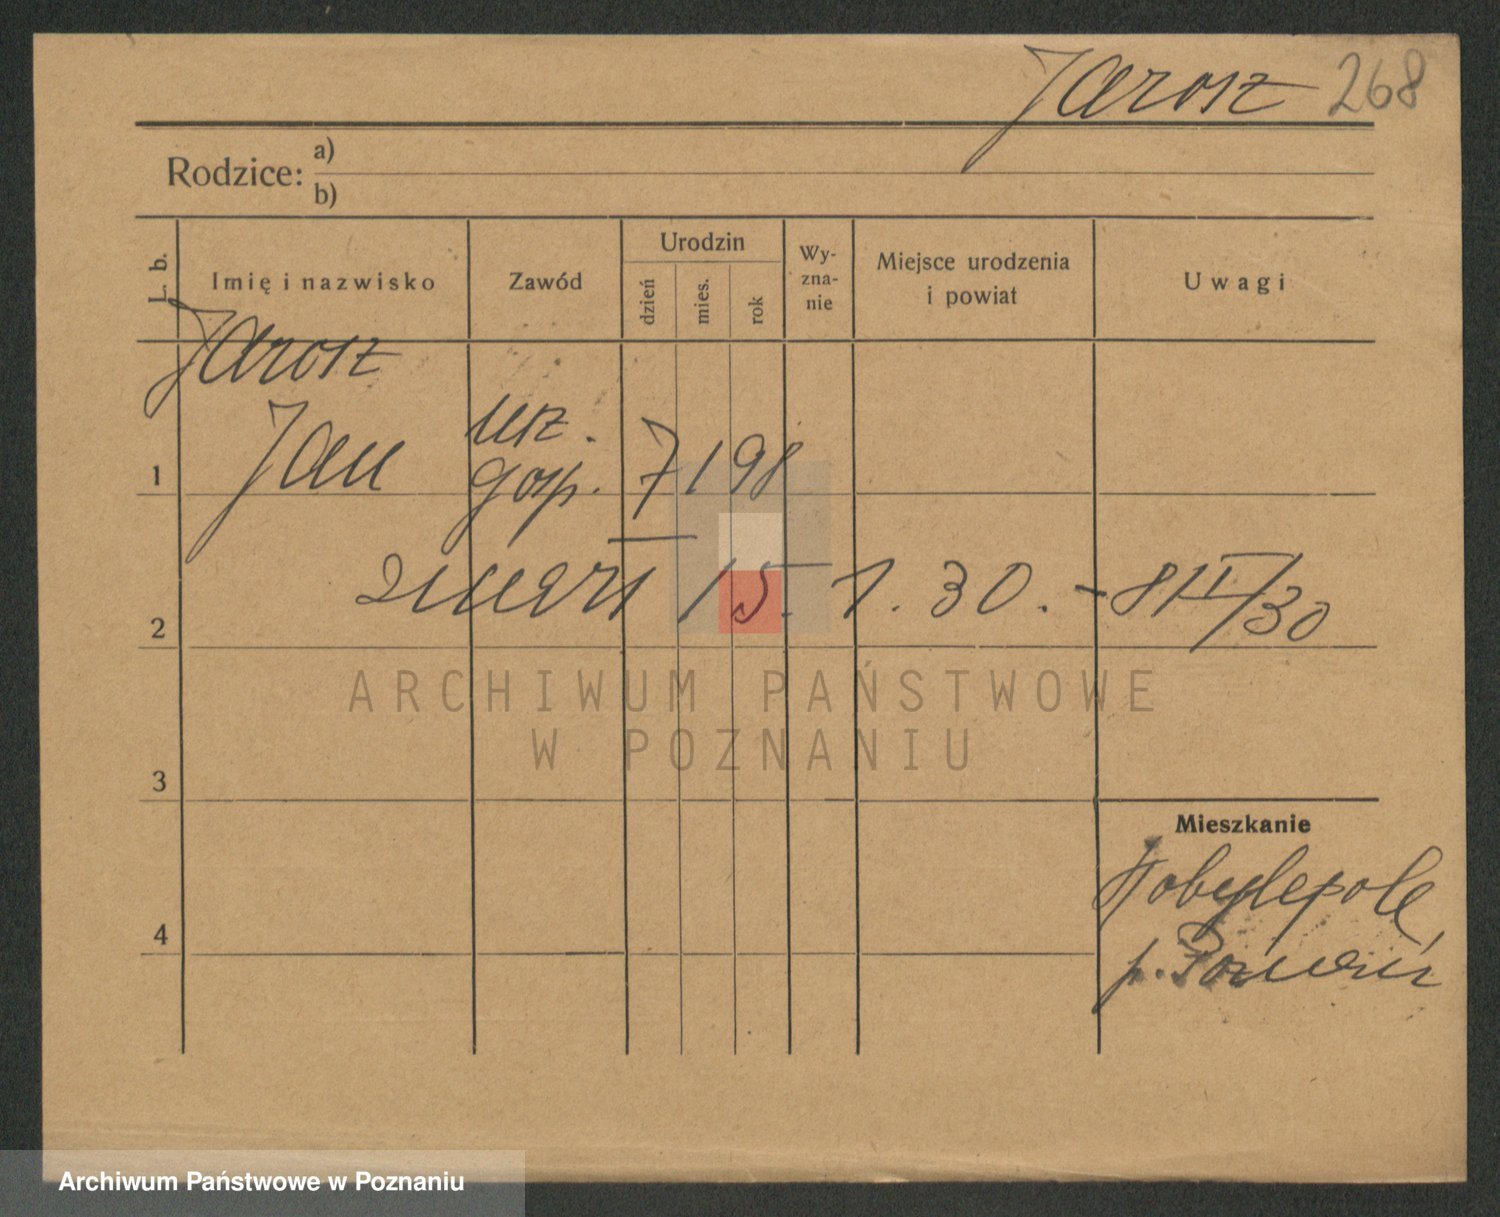 Jarosz 268
Rodzice: a)
b)
L. b.
Imię i nazwisko
Zawód
Urodzin
dzień
mies.
rok
Wy-
zna-
nie
Miejsce urodzenia
i powiat
Uwagi
Jarosz
1 Jan urz. gosp. 7 1 98
2 zmarł 15. 1. 30. - 8/II/30
3
4
Mieszkanie
Kobylepole,
p. Poznań
ARCHIWUM PAŃSTWOWE
W POZNANIU
Archiwum Państwowe w Poznaniu